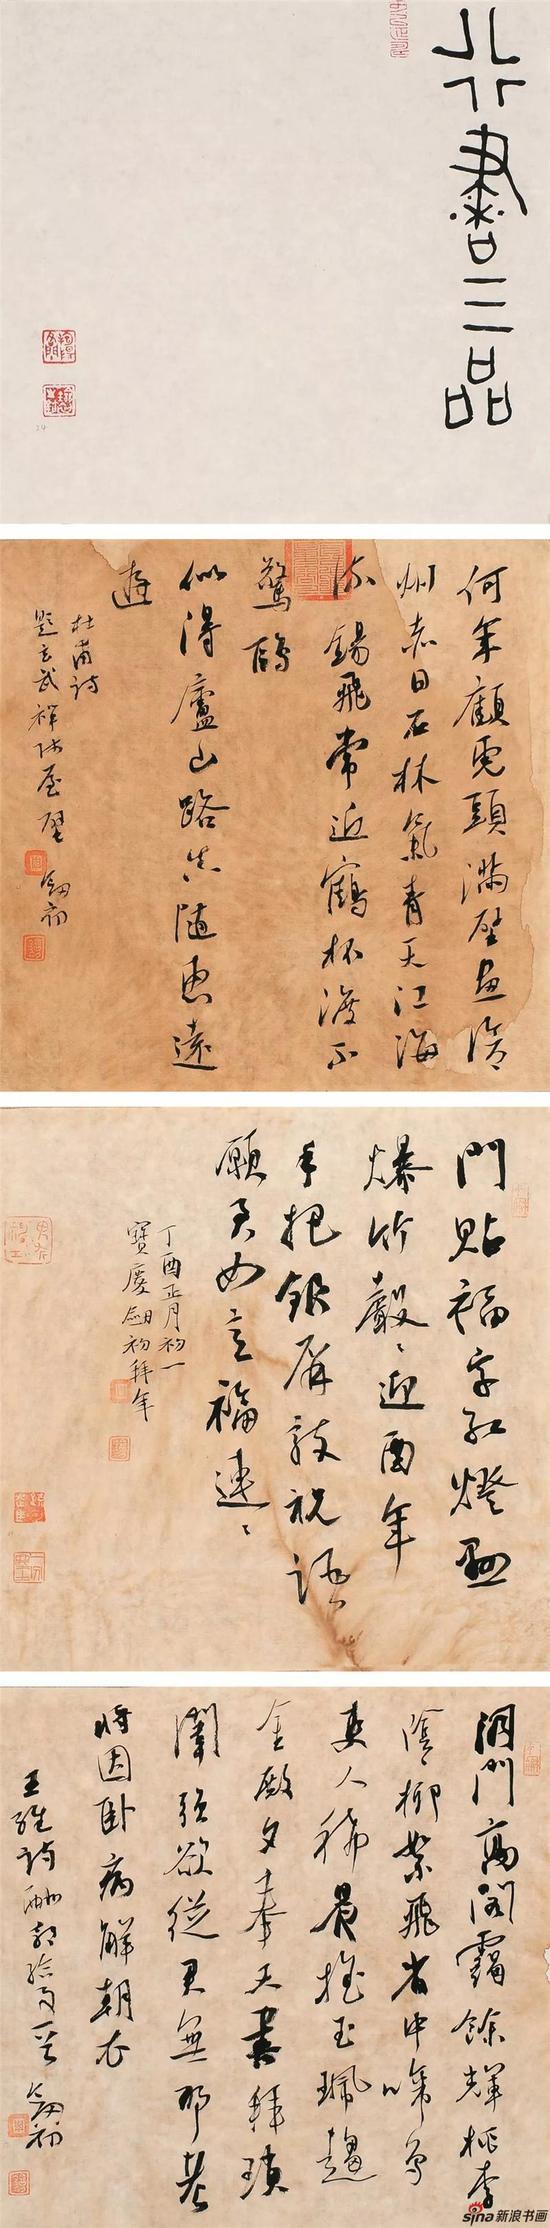 行書三品
何年顧虎頭滿壁畫滄
州赤日石林氣青天江海
流錫飛常近鶴杯渡不
驚鷗
似得廬山路真隨惠遠
遊
杜甫詩
題玄武禪師屋壁 劍初
門貼福字紅燈懸
爆竹聲聲迎酉年
手把銀屏敲祝語
願君如意福連連
丁酉正月初一
寶慶劍初拜年
洞門高閣靄餘輝桃李
陰陰柳絮飛省中啼鳥
吏人稀晨搖玉珮趨
金殿夕奉天書拜瑣
闈強欲從君無那老
將因臥病解朝衣
王維詩酬郭給事 劍初
sina新浪书画